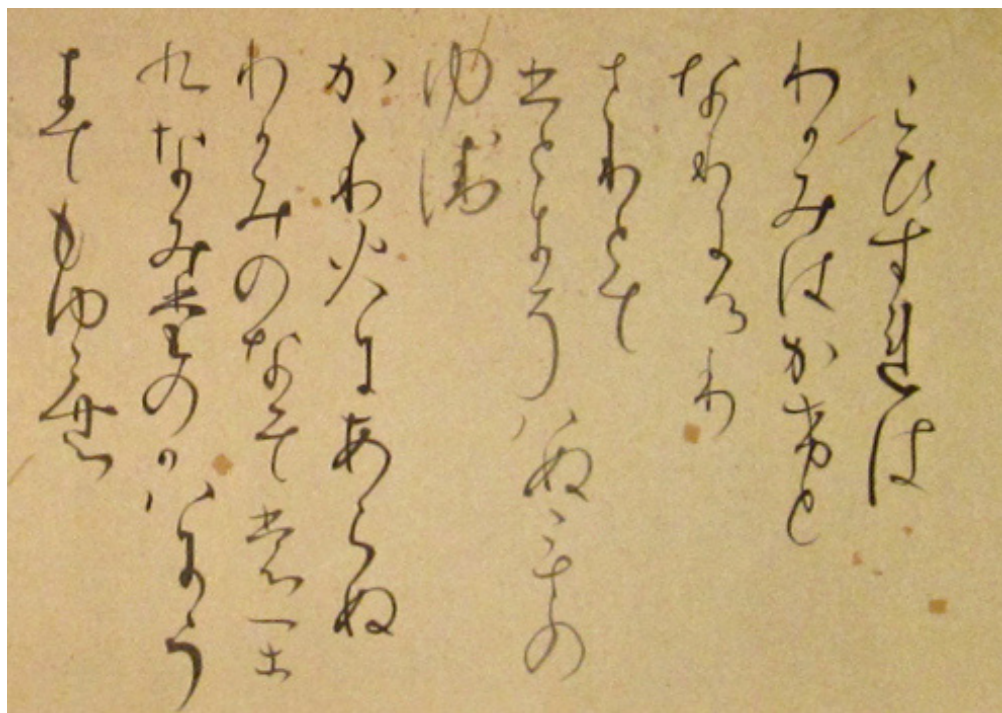 こひすれは
わかみはかけと
なりにけり
さりとて
ひとにそはぬもの
ゆゑ
かゝり火にあらぬ
わかみのなそ
なみたのかはにう
きてもゆらむ